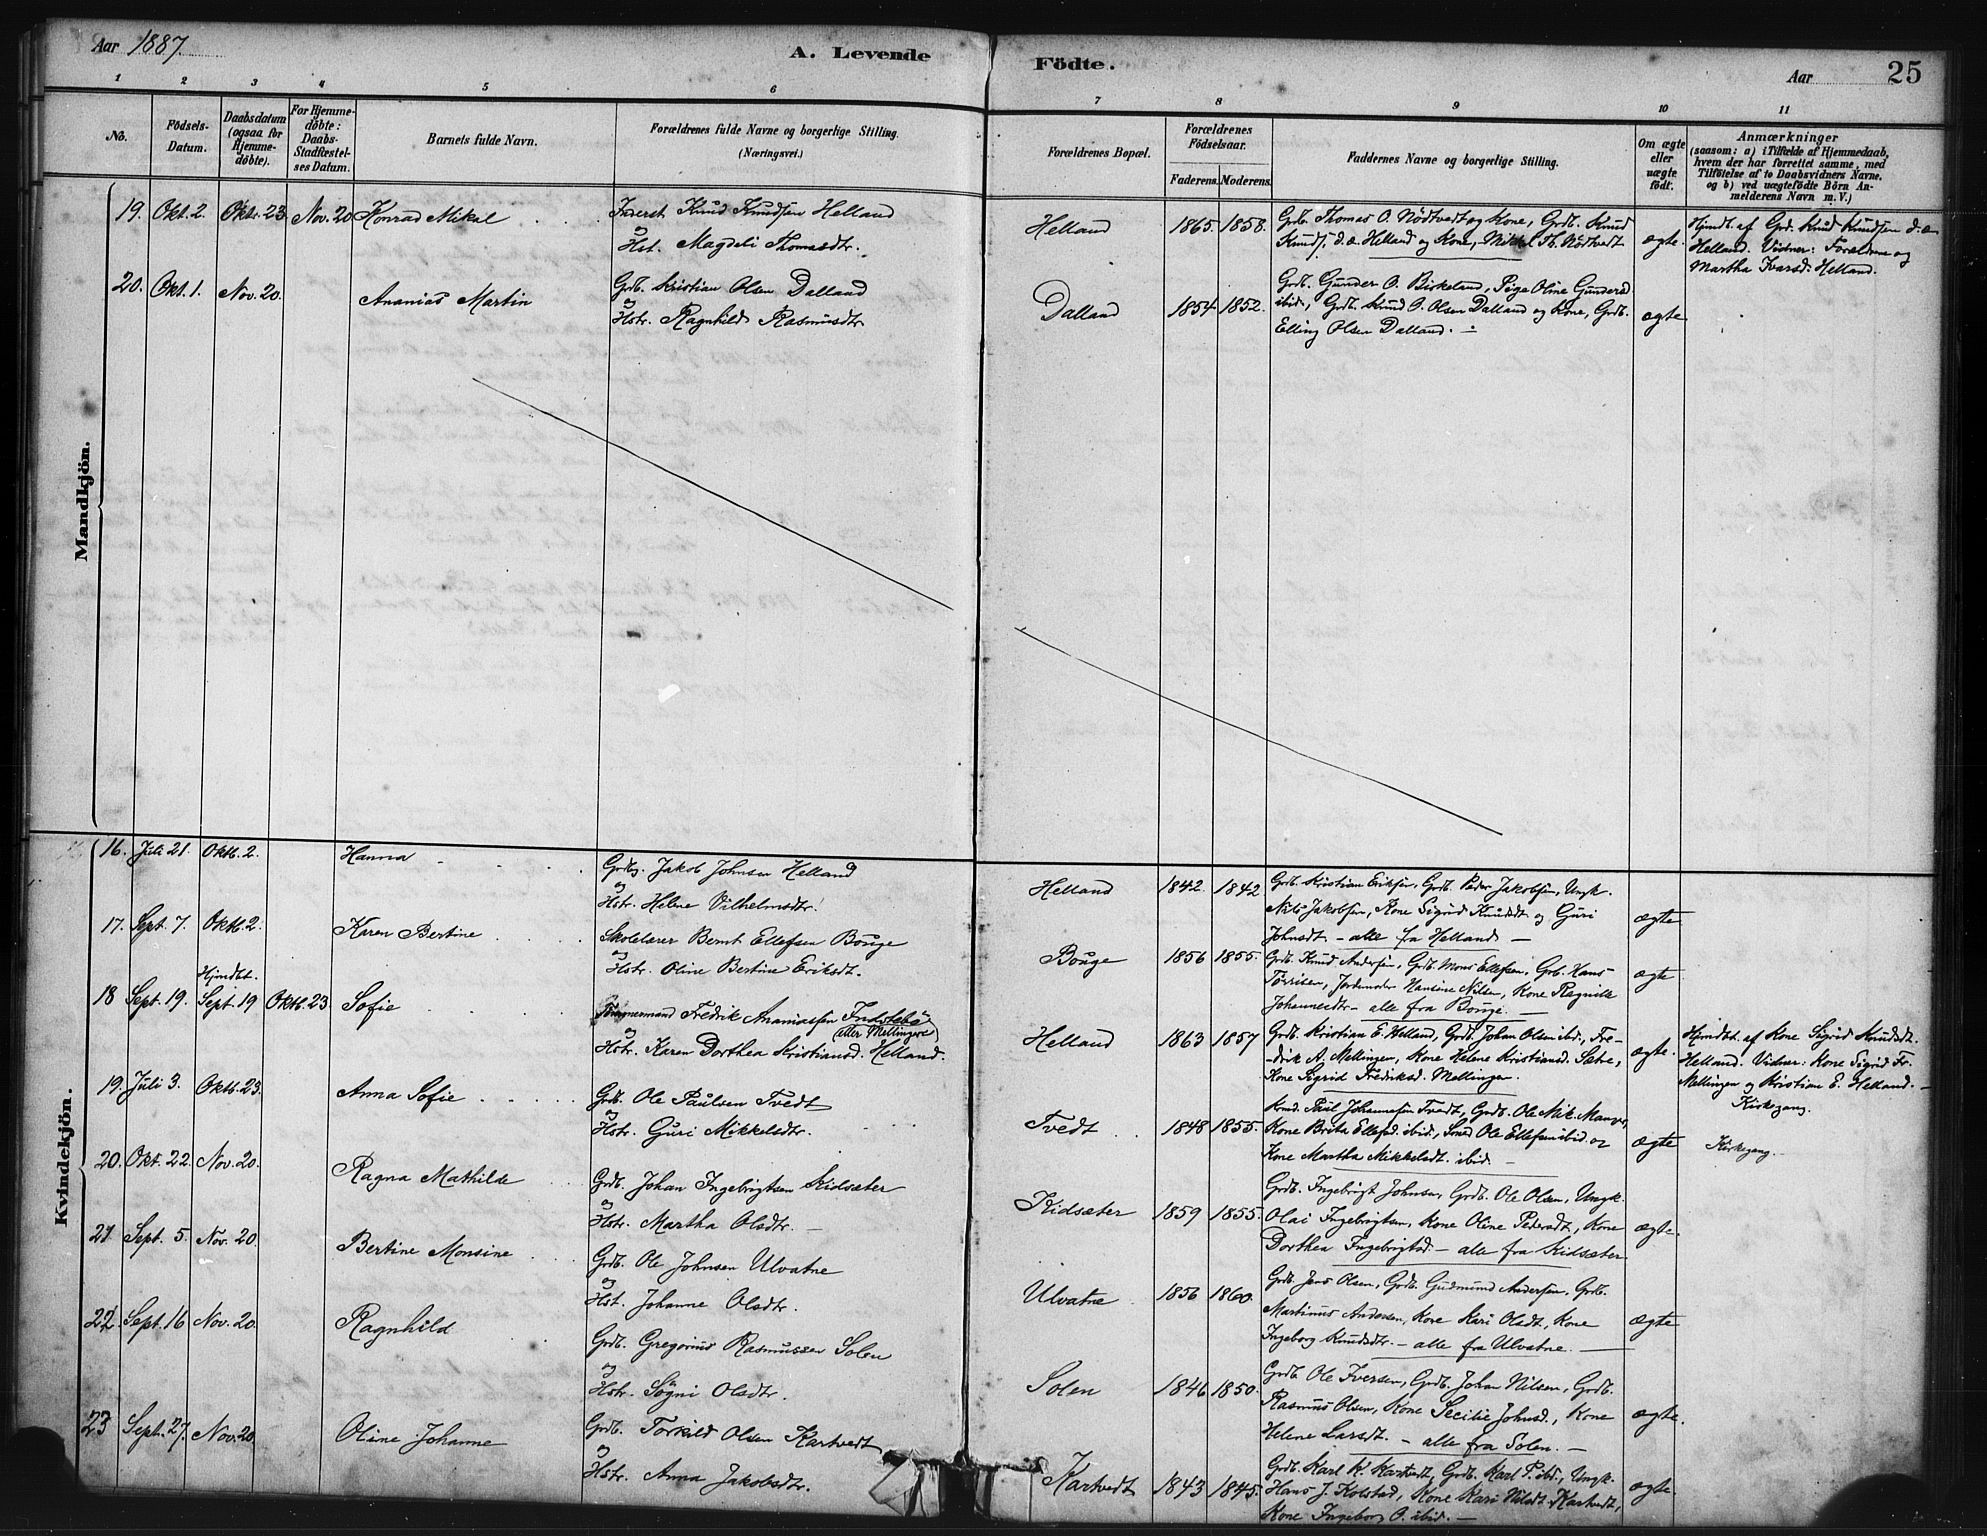 Aar 1887.
A. Levende Födte.
Aar
25
1 2 3 4 5 6 7 8 9 10 11
No.
Födsels-
Datum.
Daabsdatum
(ogsaa for
Hjemme-
døbte).
For Hjemme-
døbte:
Daabs-
Stadfæstel-
ses Datum.
Barnets fulde Navn.
Forældrenes fulde Navne og borgerlige Stilling.
(Næringsvei.)
Forældrenes Bopæl.
Forældrenes
Födselsaar.
Faderens. Moderens.
Faddernes Navne og borgerlige Stilling.
Om ægte
eller
uægte
födt.
Anmærkninger
(saasom: a) i Tilfælde af Hjemmedaab,
hvem der har forrettet samme, med
Tilföielse af to Daabsvidners Navne,
og b) ved uægtefödte Börn An-
melderens Navn m. V.)
Mandkjön.
19. Okt. 2. Oktr. 23. Nov. 20 Konrad Mikal
Inderst Knud Knudsen Helland
og
Hst. Magdeli Thomasdtr.
Helland 1865. 1858.
Grdb. Thomas O. Nödtvedt og Kone, Grdb. Knud
Knuds. d. æ. Helland og Kone, Mikkel Th. Nödtvedt
ægte.
Hjmdt. af Grd. Knud Knudsen d. æ.
Helland. Vidner: Forældrene og
Martha Ivarsd. Helland.
20. Okt. 1. Nov. 20. Ananias Martin
Grdb. Kristian Olsen Dalland
og
Hstr. Ragnhild Rasmusdtr
Dalland 1854. 1852.
Grdb. Gunder O. Birkeland, Pige Oline Gundersd.
ibid., Grdb. Knud O. Olsen Dalland og Kone, Grdb.
Elling Olsen Dalland. -
ægte
Kvindekjön.
16. Juli 21. Oktb. 2. Hanna
Grdb. Jakob Johnsen Helland
og
Hstr. Helene Vilhelmsdtr.
Helland 1842. 1842
Grdb. Kristian Eriksen, Grdb. Peder Jakobsen, Ungk.
Nils Jakobsen, Kone Sigrid Knudsdt. og Guri
Johnsdt. - alle fra Helland -
ægte
17. Sept. 7. Oktb. 2. Karen Bertine
Skolelærer Bernt Ellefsen Bouge
og
Hstr. Oline Bertine Eriksdt.
Bouge 1856 1855.
Grdb. Knud Andersen, Grdb. Mons Ellefsen, Grb. Hans
Törrisen, Jordmoder Hansine Nilsen, Kone Ragnille
Johannesdtr - alle fra Bouge. -
ægte
18 Sept. 19. Hjmdbt. Sept. 19 Oktb. 23 Sofie
Tömmermand Fredrik Ananiassen Indstebö
(atter Mellingen)
og
Hstr. Karen Dorthea Kristiansd. Helland.
Helland 1863 1857
Grdb. Kristian E. Helland, Grdb. Johan Olsen ibid., Fre-
-drik A. Mellingen, Kone Helene Kristiansd. Sætre,
Kone Sigrid Fredriksd. Mellingen.
ægte.
Hjmdbt. af Kone Sigrid Knudsdt.
Helland. Vidner: Kone Sigrid Fr.
Mellingen og Kristian E. Helland. -
Kirkegang.
19. Juli 3. Oktb. 23. Anna Sofie
Grdb. Ole Paulsen Tvedt
og
Hstr. Guri Mikkelsdtr.
Tvedt 1848 1855.
Paul Johannesen Tvedt, Grdb. Ole Mik. Manger,
Kone Brita Ellefsd. ibid., Ole Ellefsen ibid. og
Kone Martha Mikkelsdt. ibid. -
ægte
Kirkegang.
20. Okt. 22. Nov. 20. Ragna Mathilde
Grdb. Johan Ingebrigtsen Kidsæter
og
Hstr. Martha Olsdtr. -
Kidsæter 1859 1855.
Grdb. Ingebrigt Johnsen, Grdb. Ole Olsen, Ungk.
Olai Ingebrigtsen, Kone Oline Pedersdt., Kone
Dorthea Ingebrigtsd. - alle fra Kidsæter
ægte.
21. Sept. 5. Nov. 20. Bertine Monsine
Grdb. Ole Johnsen Ulvatne
og
Hst. Johanne Olsdtr.
Ulvatne 1856 1860.
Grdb. Jens Olsen, Grdb. Gudmund Andersen, Grdb.
Martinus Andersen, Kone Kari Olsdt., Kone
Ingeborg Knudsdtr. - alle fra Ulvatne. -
ægte
22. Sept. 16 Nov. 20. Ragnhild
Grdb. Gregorius Rasmussen Solen
og
Hstr. Sögni Olsdtr.
Solen 1846 1850.
Grdb. Ole Iversen, Grdb. Johan Nilsen, Grdb.
Rasmus Olsen, Kone Secilie Johnsd., Kone
Helene Larsdt. - alle fra Solen. -
ægte.
23 Sept. 27. Nov. 20 Oline Johanne
Grdb. Torkild Olsen Kartvedt
og
Hstr. Anna Jakobsdtr.
Kartvedt 1843 1845.
Grdb. Karl K. Kartvedt, Grdb. Karl P. ibd., Ungk.
Hans J. Kolstad, Kone Kari Nilsdt. Kartvedt,
Kone Ingeborg O. ibid. -
ægte.